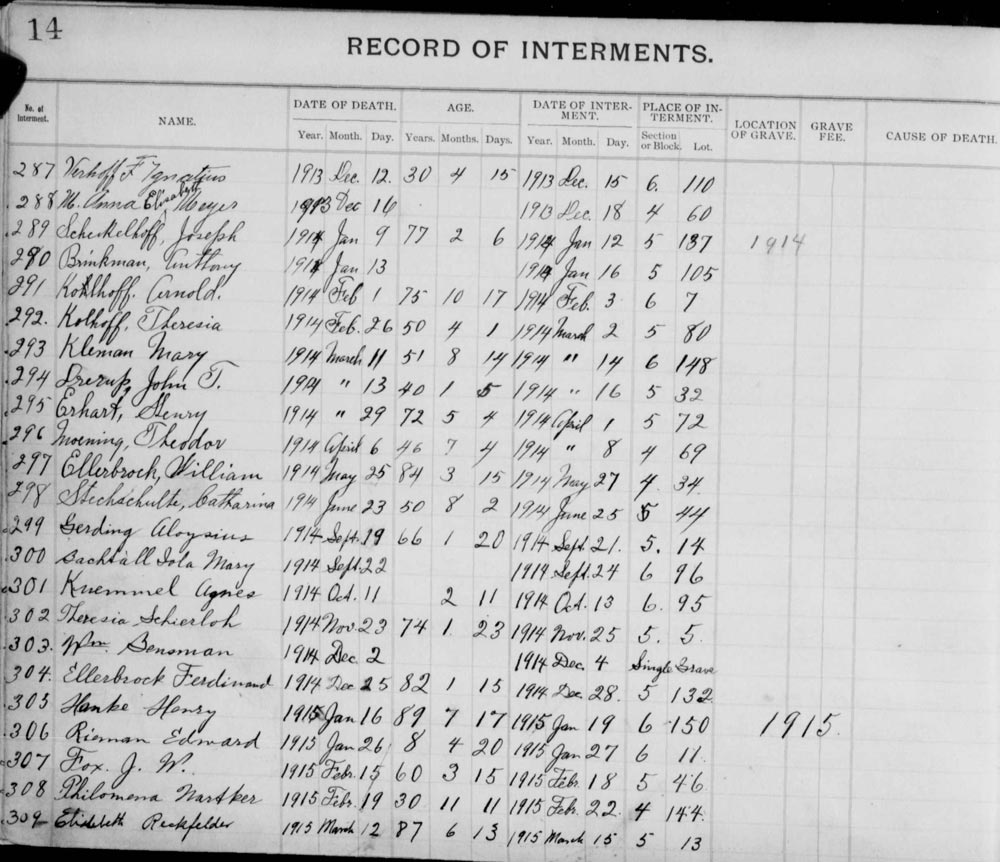 14
RECORD OF INTERMENTS.
No. of Interment. NAME. DATE OF DEATH. AGE. DATE OF INTERMENT. PLACE OF INTERMENT. LOCATION OF GRAVE. GRAVE FEE. CAUSE OF DEATH.
Year. Month. Day. Years. Months. Days. Year. Month. Day. Section or Block. Lot.
287 Verhoff F Ignatius 1913 Dec. 12. 30 4 15 1913 Dec. 15 6. 110
288 M. Anna Elisabeth Meyer 1913 Dec 16 1913 Dec. 18 4 60
289 Scheckelhoff, Joseph 1914 Jan 9 77 2 6 1914 Jan 12 5 137 1914
290 Brinkman, Anthony 1914 Jan 13 1914 Jan 16 5 105
291 Kohlhoff. Arnold. 1914 Feb 1 75 10 17 1914 Feb. 3 6 7
292. Kolhoff, Theresia 1914 Feb. 26 50 4 1 1914 March 2 5 80
293 Kleman Mary 1914 March 11 51 8 14 1914 " 14 6 148
294 Drerup, John T. 1914 " 13 40 1 5 1914 " 16 5 32
295 Erhart, Henry 1914 " 29 72 5 4 1914 April 1 5 72
296 Moening, Theodor 1914 April 6 46 7 4 1914 " 8 4 69
297 Ellerbrock, William 1914 May 25 84 3 15 1914 May 27 4. 34.
298 Stechschulte, Catharina 1914 June 23 50 8 2 1914 June 25 5 44
299 Gerding Aloysius 1914 Sept. 19 66 1 20 1914 Sept. 21. 5. 14
300 Iola Mary 1914 Sept. 22 1914 Sept. 24 6 96
301 Kuemmel Agnes 1914 Oct. 11 2 11 1914 Oct. 13 6. 95
302 Theresia Schierloh 1914 Nov. 23 74 1. 23 1914 Nov. 25 5. 5.
303. Wm. Bensman 1914 Dec. 2 1914 Dec. 4 Single Grave
304. Ellerbrock Ferdinand 1914 Dec 25 82 1 15 1914 Dec. 28. 5 132
305 Hanke Henry 1915 Jan 16 89 7 17 1915 Jan 19 6 150 1915.
306 Rieman Edward 1915 Jan 26 8 4 20 1915 Jan 27 6 11
307 Fox. J. W. 1915 Febr. 15 60 3 15 1915 Febr. 18 5 46
308 Philomena Nartker 1915 Febr. 19 30 11 11 1915 Febr. 22. 4 144.
309 Elisabeth Reckfelder 1915 March 12 87 6 13 1915 March 15 5 13